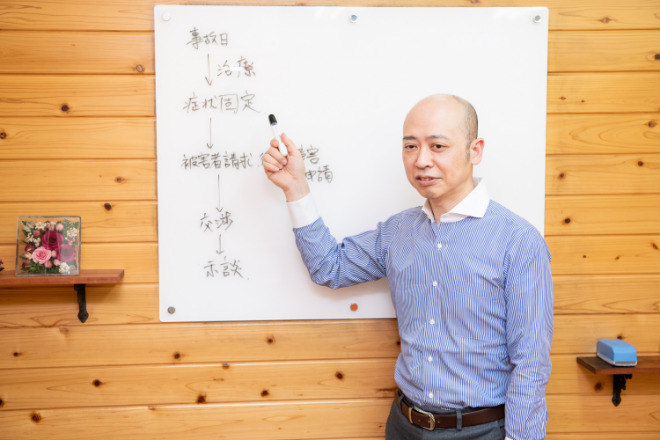 事故日
治療
症状固定
被害者請求
害
申請
交渉
示談